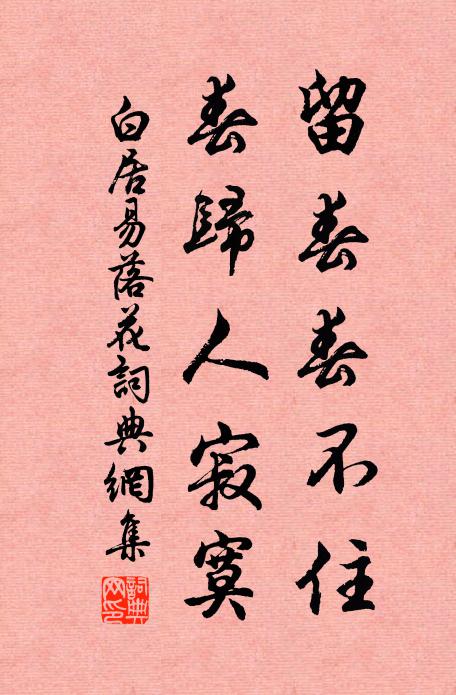 留春春不住
春歸人寂寞
白居易落花詞典網集
詞典網印